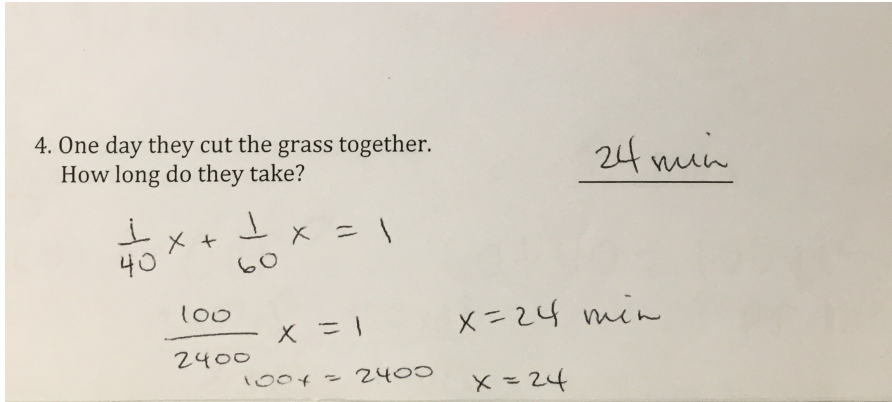 4. One day they cut the grass together.
How long do they take?
24 min
1/40 x + 1/60 x = 1
100/2400 x = 1
x = 24 min
100x = 2400
x = 24